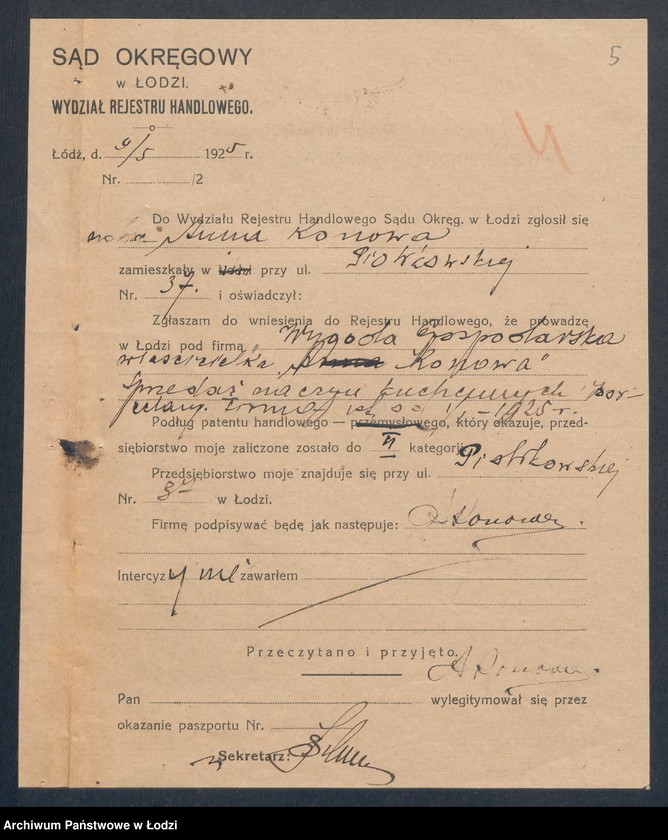 5
SĄD OKRĘGOWY
w ŁODZI.
WYDZIAŁ REJESTRU HANDLOWEGO.
4
Łódź, d. 9/5 1925 r.
Nr. /2
Do Wydziału Rejestru Handlowego Sądu Okręg. w Łodzi zgłosił się
Anna Konowa
zamieszkały w przy ul. Piotrkowskiej
Nr. 37. i oświadczył:
Zgłaszam do wniesienia do Rejestru Handlowego, że prowadzę
w Łodzi pod firmą „Wygoda Gospodarska
właścicielka Konowa"
sprzedaż naczyń kuchennych i por-
1925 r.
Podług patentu handlowego — przemysłowego, który okazuje, przed-
siębiorstwo moje zaliczone zostało do II kategorji
Przedsiębiorstwo moje znajduje się przy ul. Piotrkowskiej
Nr. 37 w Łodzi.
Firmę podpisywać będę jak następuje: A Konowa.
Intercyzy nie zawarłem
Przeczytano i przyjęto.
A Konowa.
Pan wylegitymował się przez
okazanie paszportu Nr.
Sekretarz:
Archiwum Państwowe w Łodzi